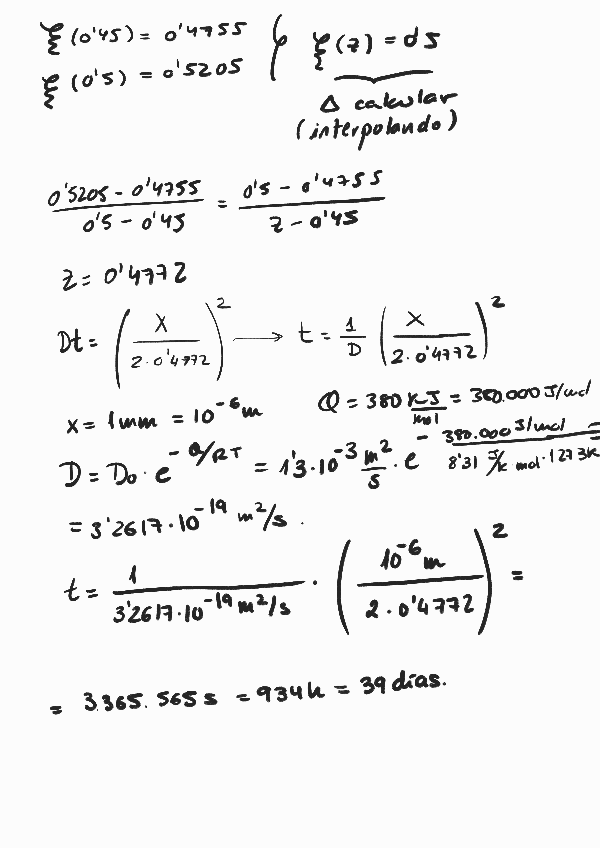 ξ(0'45) = 0'4755
ξ(0'5) = 0'5205
ξ(z) = 0'5
Δ calcular
(interpolando)
(0'5205 - 0'4755) / (0'5 - 0'45) = (0'5 - 0'4755) / (z - 0'45)
z = 0'4772
Dt = (X / (2·0'4772))² → t = 1/D (X / (2·0'4772))²
x = 1mm = 10⁻⁶m Q = 380 KJ/mol = 380.000 J/mol
D = D₀·e^(-Q/RT) = 1'3·10⁻³ m²/s · e^(-380.000 J/mol / 8'31 J/k mol·1273k)
= 3'2617·10⁻¹⁹ m²/s.
t = 1 / (3'2617·10⁻¹⁹ m²/s) · (10⁻⁶m / (2·0'4772))² =
= 3.365.565 s = 934h = 39 días.